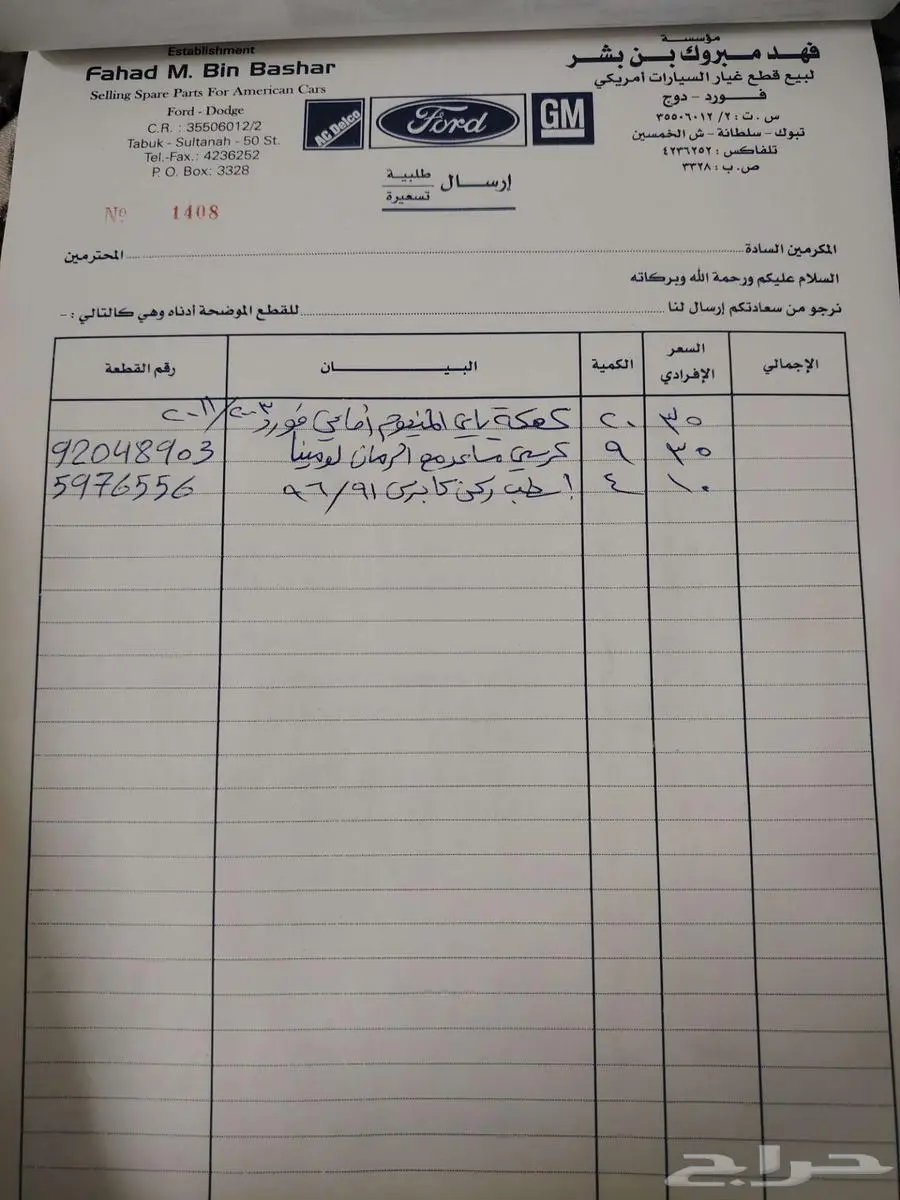 Establishment
Fahad M. Bin Bashar
Selling Spare Parts For American Cars
Ford - Dodge
C.R. : 35506012/2
Tabuk - Sultanah - 50 St.
Tel.-Fax.: 4236252
P. O. Box: 3328
AC Delco
Ford
GM
مؤسسة
فهد مبروك بن بشر
لبيع قطع غيار السيارات أمريكي
فورد - دوج
س . ت : ٣٥٥٠٦٠١٢/٢
تبوك - سلطانة - ش الخمسين
تلفاكس : ٤٢٣٦٢٥٢
ص . ب : ٣٣٢٨
إرسال
طلبية
تسعيرة
Nº 1408
المكرمين السادة المحترمين
السلام عليكم ورحمة الله وبركاته
نرجو من سعادتكم إرسال لنا للقطع الموضحة أدناه وهي كالتالي : -
الإجمالي السعر الإفرادي الكمية البيــان رقم القطعة
٣٥ ٢٠ باي المنيوم أمامي فورد ٢٠٠٣/٢٠١١
٣٥ ٩ كرسي مساعد مع الرمان لومينا 92048903
١٠ ٤ اسطب ركن كابرس ٩٦/٩١ 5976556
حراج